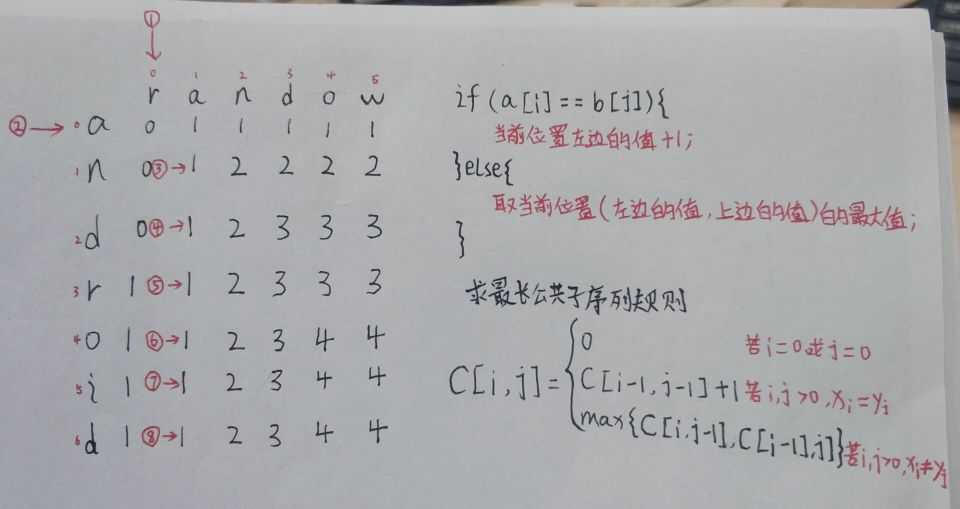 ①
0 1 2 3 4 5
r a n d o w
② → 0 a 0 1 1 1 1 1
1 n 0 ③→ 1 2 2 2 2
2 d 0 ④→ 1 2 3 3 3
3 r 1 ⑤→ 1 2 3 3 3
4 o 1 ⑥→ 1 2 3 4 4
5 i 1 ⑦→ 1 2 3 4 4
6 d 1 ⑧→ 1 2 3 4 4
if (a[i] == b[j]){
当前位置左边的值+1;
}else{
取当前位置(左边的值,上边的值)的最大值;
}
求最长公共子序列规则
0 若i=0或j=0
C[i,j]= { C[i-1,j-1]+1 若i,j>0,xi=yj
max{C[i,j-1],C[i-1],j]} 若i,j>0,xi≠yj